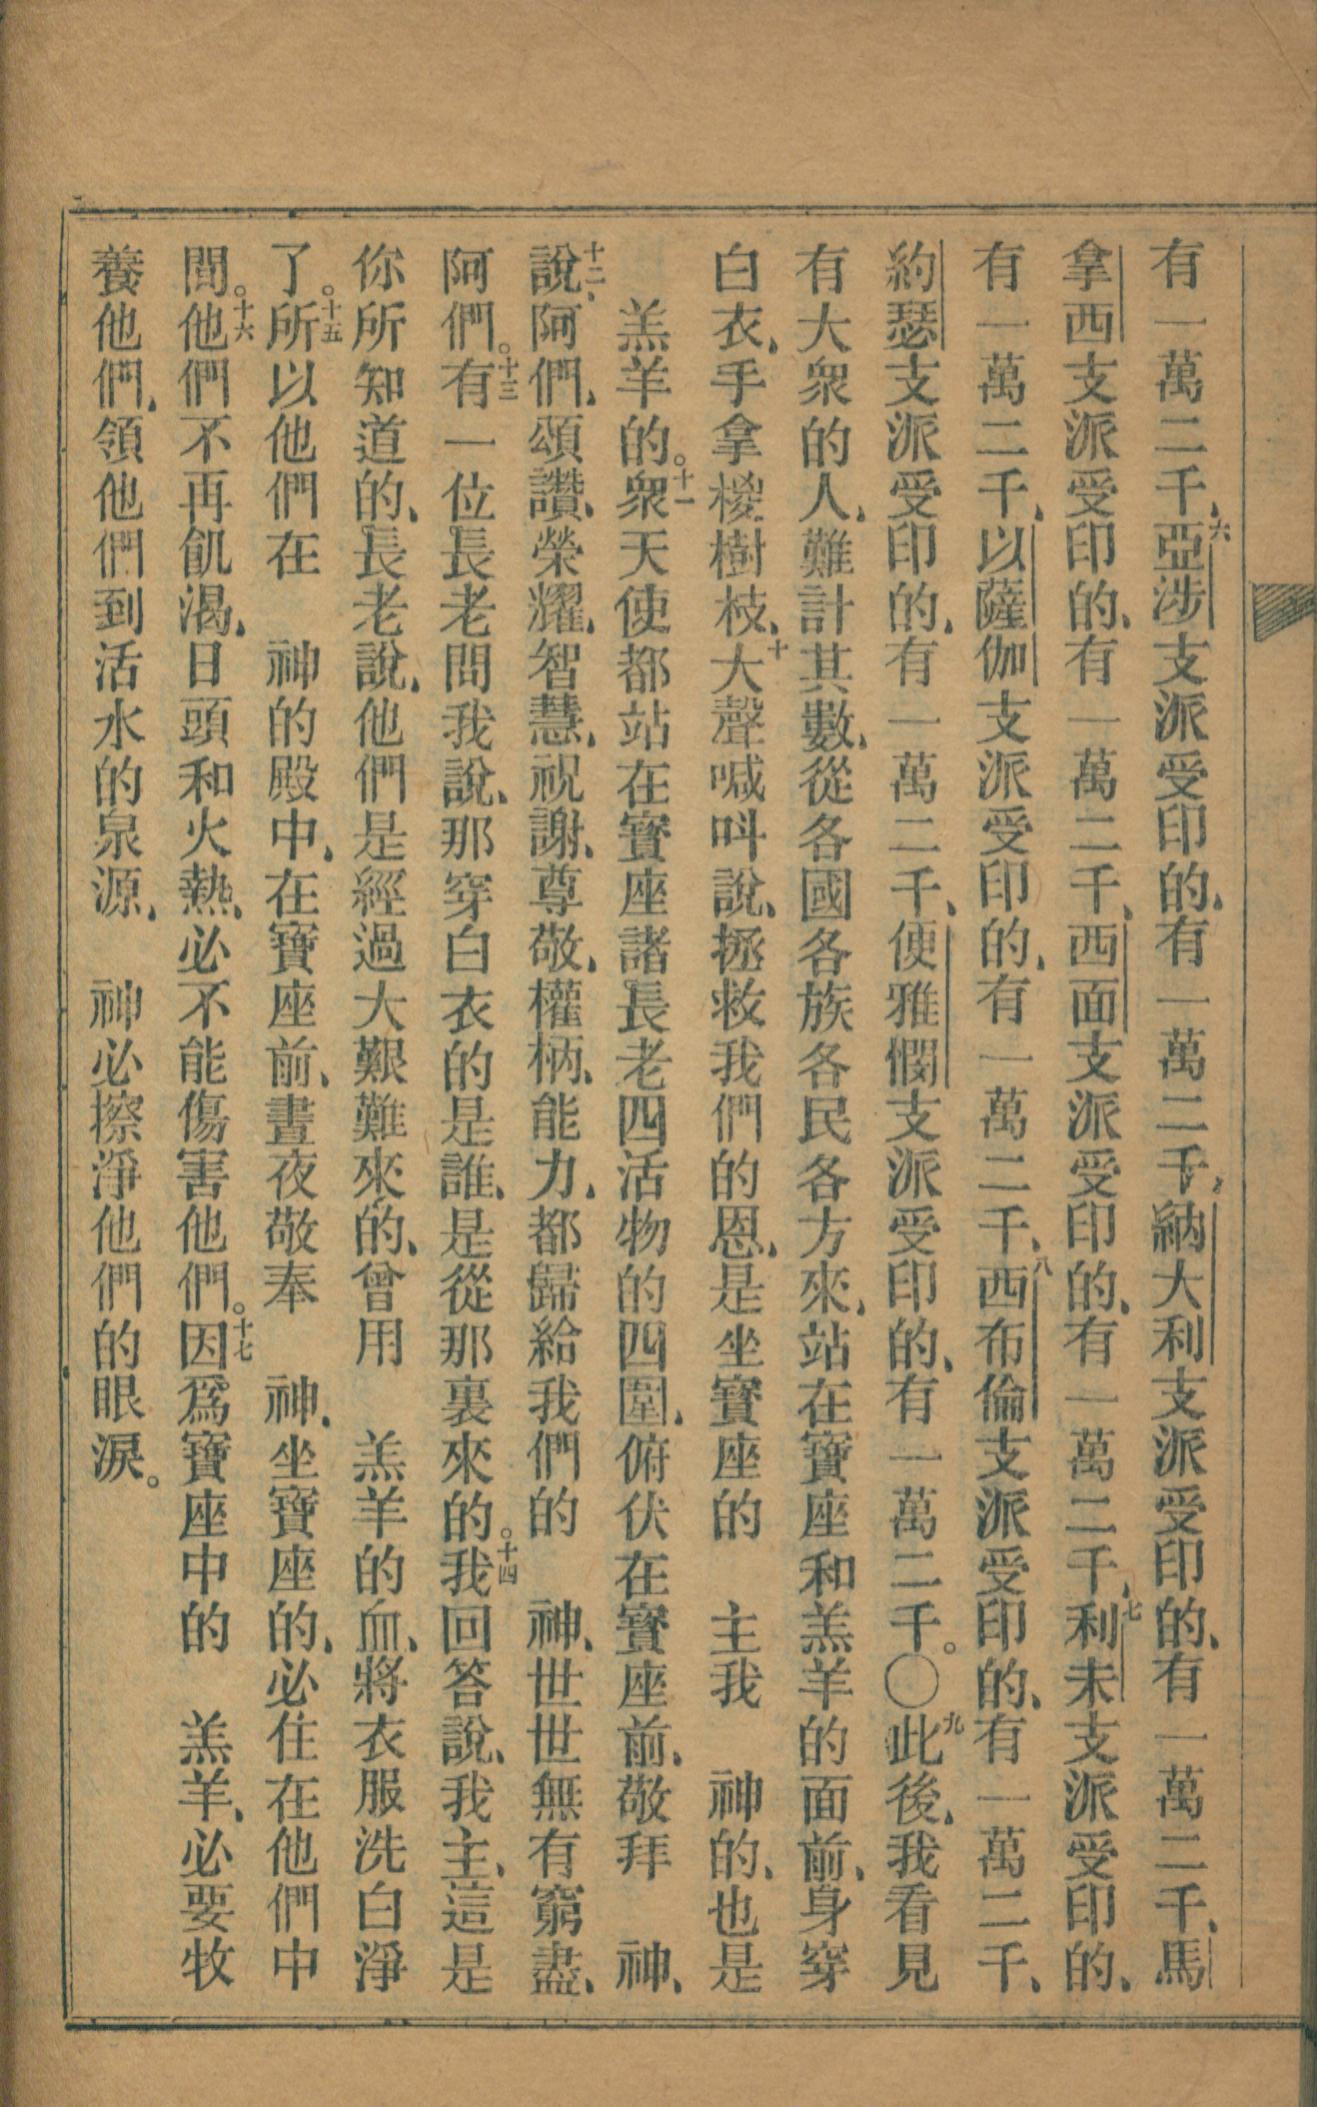 有一萬二千、六亞涉支派受印的、有一萬二千、納大利支派受印的、有一萬二千、馬
拿西支派受印的、有一萬二千、西面支派受印的、有一萬二千、七利未支派受印的、
有一萬二千、以薩伽支派受印的、有一萬二千、八西布倫支派受印的、有一萬二千、
約瑟支派受印的、有一萬二千、便雅憫支派受印的、有一萬二千。〇九此後、我看見
有大衆的人、難計其數、從各國各族各民各方來、站在寶座和羔羊的面前、身穿
白衣、手拿椶樹枝、十大聲喊呌說、拯救我們的恩、是坐寶座的　主我　神的、也是
　羔羊的。十一衆天使都站在寶座諸長老四活物的四圍、俯伏在寶座前、敬拜　神、
十二說、阿們、頌讚、榮耀、智慧、祝謝、尊敬、權柄、能力、都歸給我們的　神、世世無有窮盡、
阿們。十三有一位長老問我說、那穿白衣的是誰、是從那裏來的。十四我回答說、我主、這是
你所知道的、長老說、他們是經過大艱難來的、曾用　羔羊的血、將衣服洗白淨
了。十五所以他們在　神的殿中、在寶座前、晝夜敬奉　神、坐寶座的、必住在他們中
間。十六他們不再飢渴、日頭和火熱、必不能傷害他們。十七因爲寶座中的　羔羊、必要牧
養他們、領他們到活水的泉源、　神必擦淨他們的眼淚。